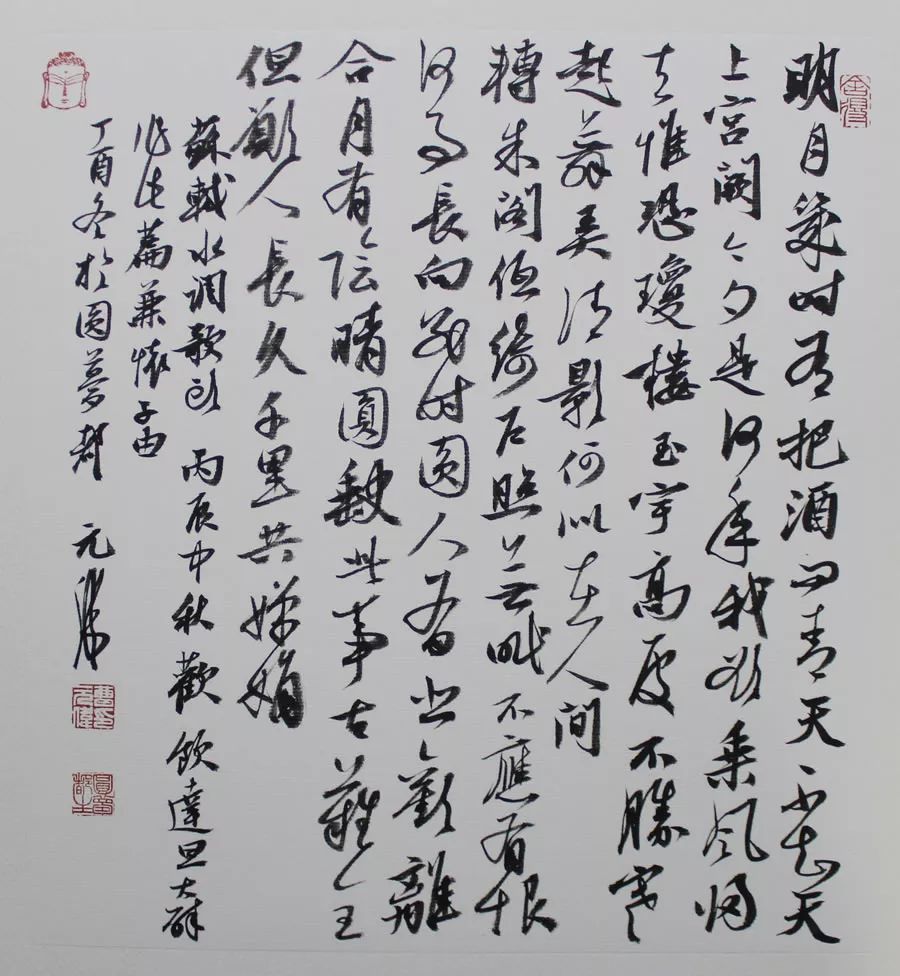 明月幾时有把酒问青天不知天
上宫阙今夕是何年我欲乘风归
去惟恐瓊樓玉宇高處不勝寒
起舞弄清影何似在人间
轉朱阁低绮户照无眠不應有恨
何事長向别时圆人有悲歡離
合月有陰晴圓缺此事古難全
但願人長久千里共嬋娟
蘇軾水调歌头 丙辰中秋歡飲達旦大醉
作此篇兼懷子由
丁酉冬於圆夢都 元